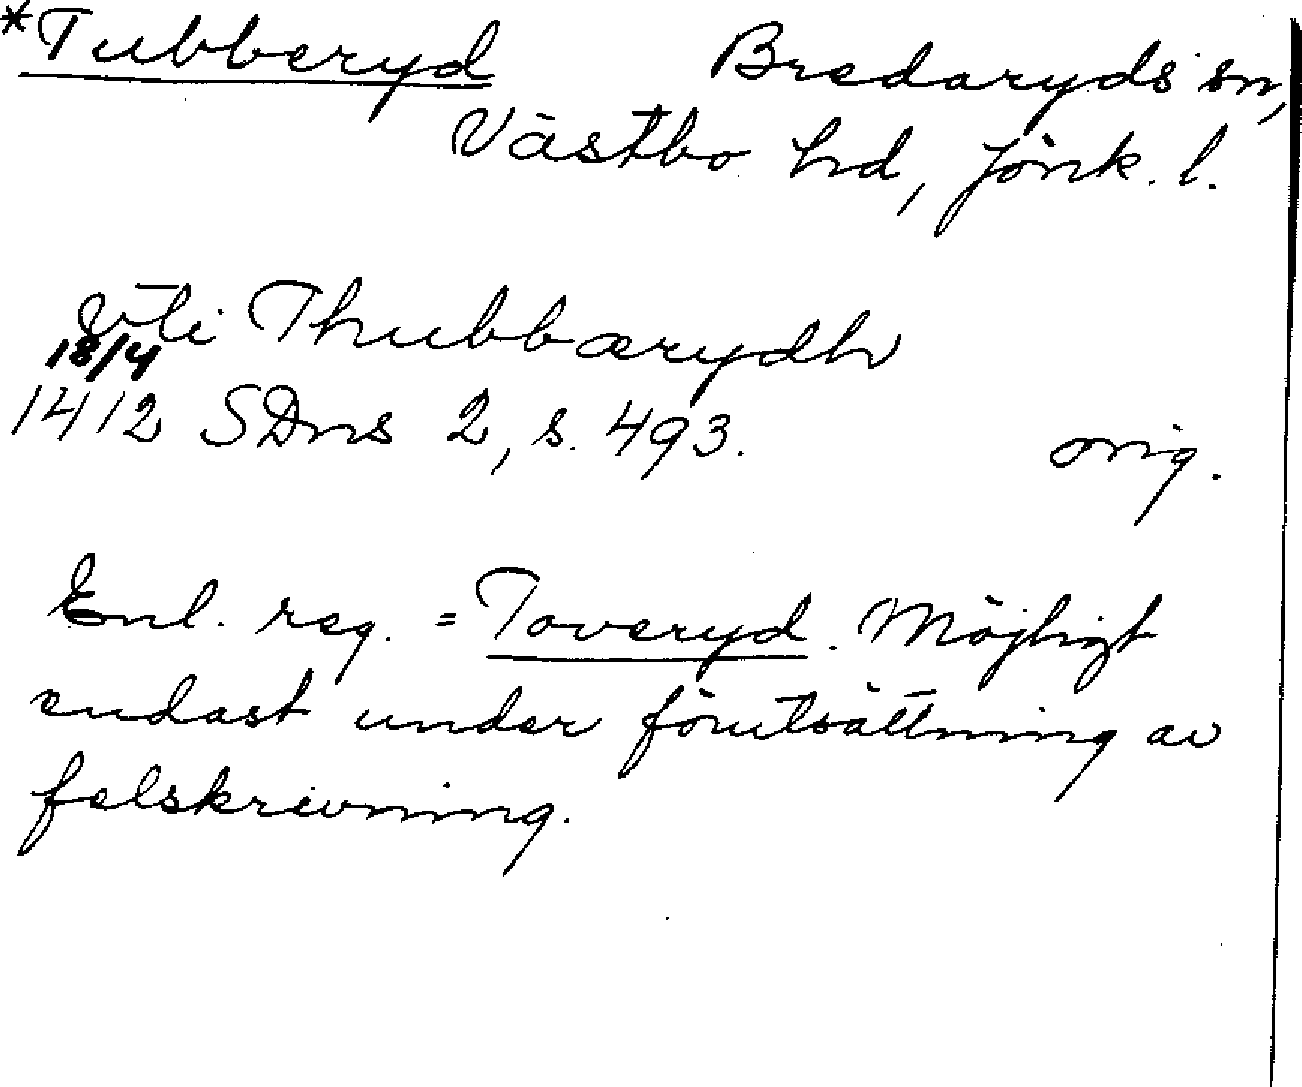 *Tubberyd Bredaryds sn,
Västbo hd, Jönk. l.
i Thubbærydh
18/4
1412 SDns 2, s. 493. orig.
Enl. reg. = Toveryd. Möjligt
endast under förutsättning av
felskrivning.